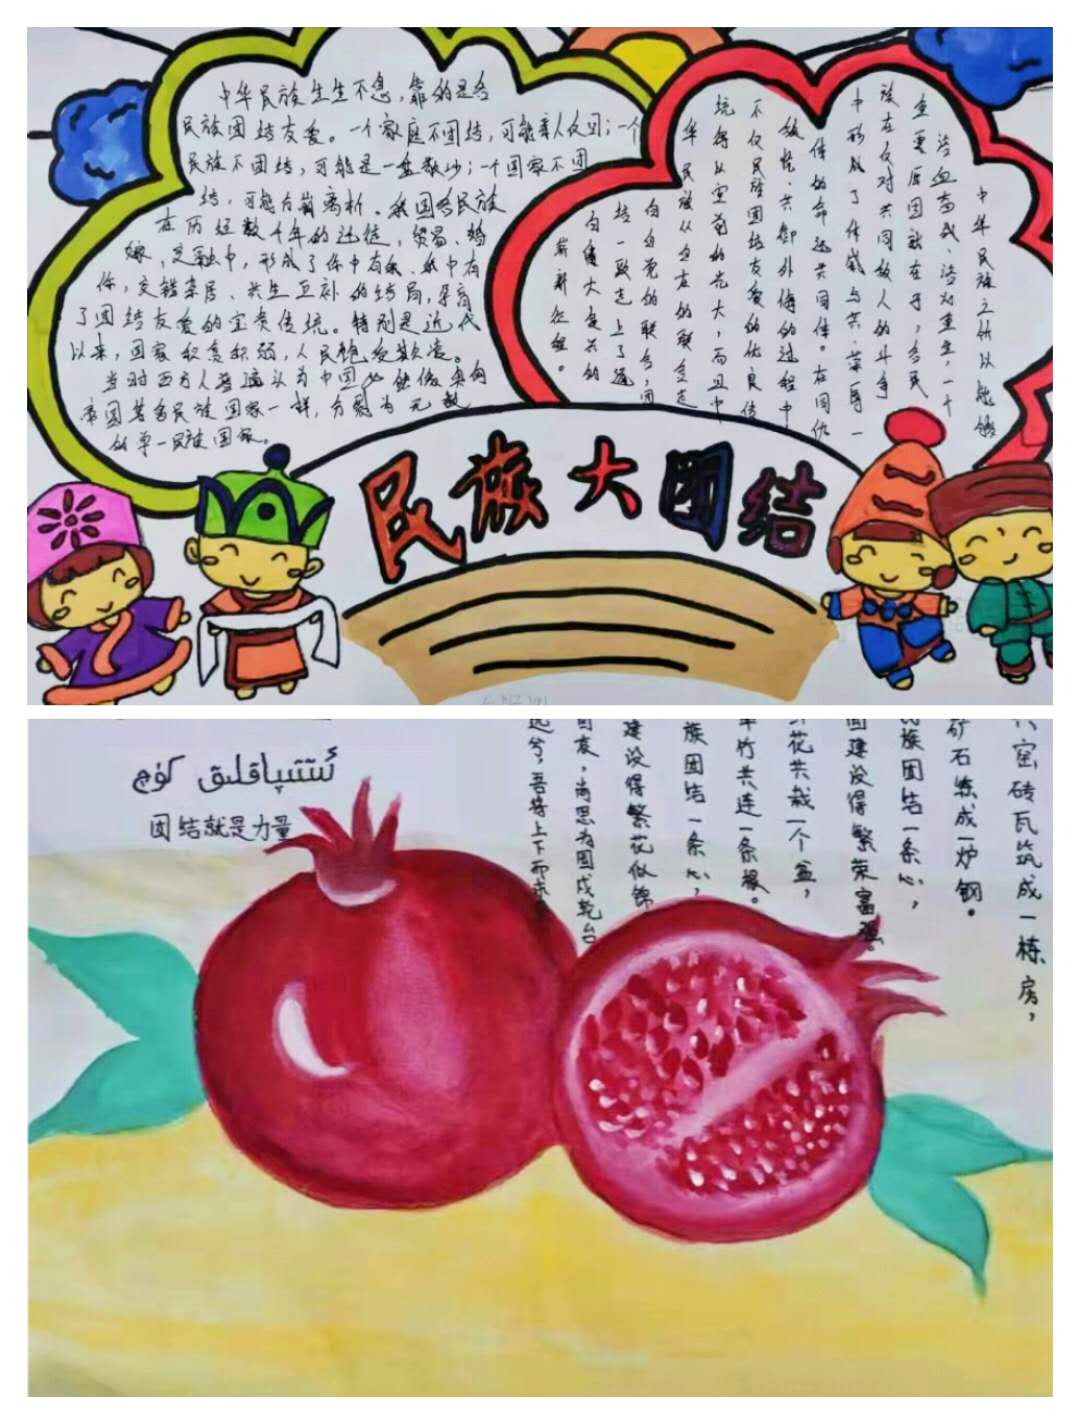 中华民族生生不息，靠的是各
民族团结友爱。一个家庭不团结，可能亲人反目；一个
民族不团结，可能是一盘散沙；一个国家不团
结，可能分崩离析。我国各民族
在历经数千年的迁徙，贸易、婚
嫁，交融中，形成了你中有我、我中有
你，交错杂居、共生互补的结局，孕育
了团结友爱的宝贵传统。特别是近代
以来，国家积贫积弱，人民饱受欺凌。
当时西方人普遍认为中国必然像奥匈
帝国等多民族国家一样，分裂为无数
的单一民族国家。
中华民族之所以能够
浴血奋战、浴火重生，一个
重要原因就在于，各民
族在反对共同敌人的斗争
中形成了休戚与共、荣辱一
体的命运共同体。在同仇
敌忾、共御外侮的过程中
不仅民族团结友爱的优良传
统得以空前的光大，而且中
华民族从自在的联合走
向自觉的联合，团
结一致走上了通
向伟大复兴的
崭新征程。
民族大团结
ئىتتىپاقلىق كۈچ
团结就是力量
窑砖瓦筑成一栋房，
矿石炼成一炉钢。
族团结一条心，
国建设得繁荣富强。
花共栽一个盆，
竹共连一条根。
族团结一条心，
建设得繁花似锦
友，尚思为国戍轮台
远兮，吾将上下而求